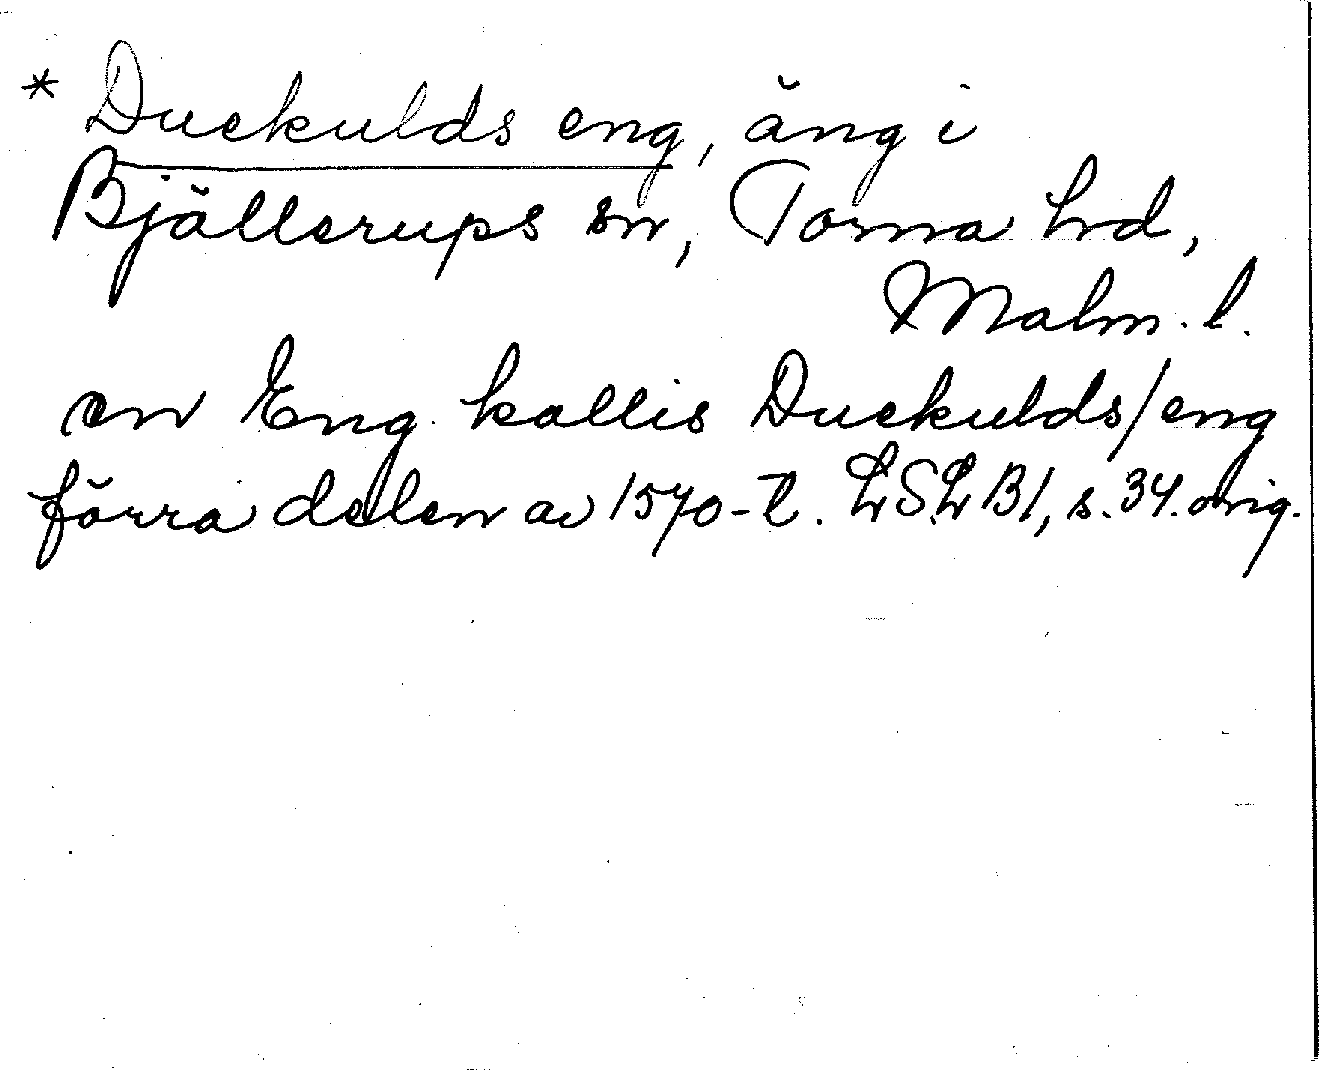 * Duckulds eng, äng i
Bjällerups sn, Torna hrd,
Malm. l.
en Eng kallis Duckulds/eng
förra delen av 1570-t. LSLB1, s. 34. orig.